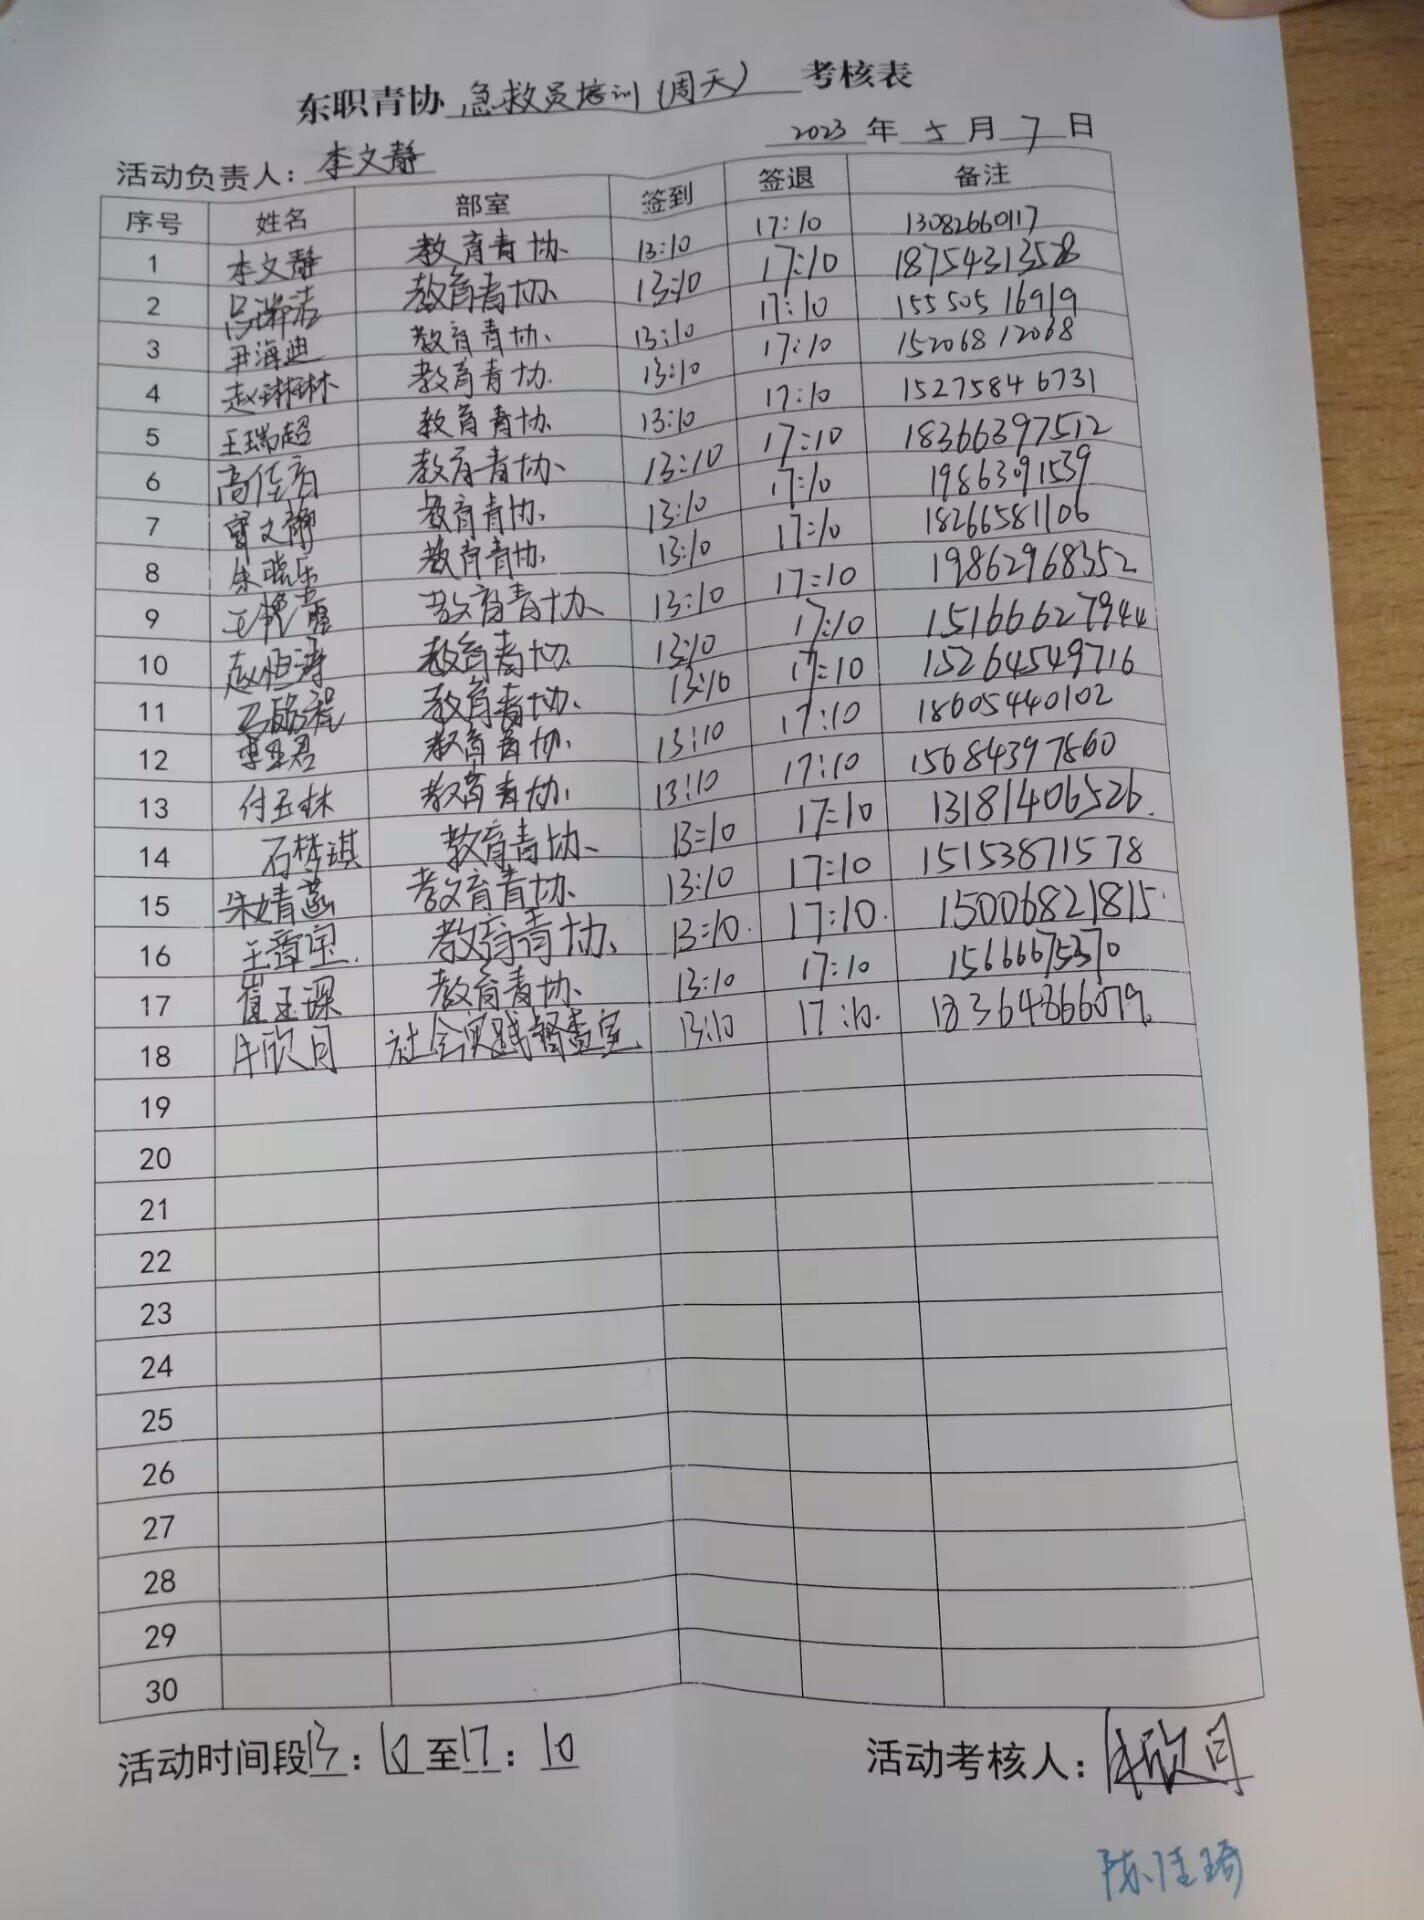 东职青协 急救员培训(周天) 考核表
2023 年 5 月 7 日
活动负责人: 李文静
序号 姓名 部室 签到 签退 备注
1 李文静 教育青协 13:10 17:10 13082660117
2 吕 洁 教育青协 13:10 17:10 18754313528
3 尹海迪 教育青协 13:10 17:10 15550516919
4 赵琳琳 教育青协 13:10 17:10 15206812068
5 王瑞超 教育青协 13:10 17:10 15275846731
6 高佳 教育青协 13:10 17:10 18366397512
7 文静 教育青协 13:10 17:10 19863091539
8 朱 乐 教育青协 13:10 17:10 18266581106
9 王艳 教育青协 13:10 17:10 19862968352
10 赵恒涛 教育青协 13:10 17:10 15166627944
11 程 教育青协 13:10 17:10 15264549716
12 君 教育青协 13:10 17:10 18605440102
13 付玉林 教育青协 13:10 17:10 15684397860
14 石梦琪 教育青协 13:10 17:10 13181406526
15 朱婧菡 教育青协 13:10 17:10 15153871578
16 王章宝 教育青协 13:10 17:10 15006821815
17 崔玉琛 教育青协 13:10 17:10 15666675370
18 牛欣月 社会实践督查室 13:10 17:10 18364866079
19
20
21
22
23
24
25
26
27
28
29
30
活动时间段13:10至17:10 活动考核人: 牛欣月
陈佳琦